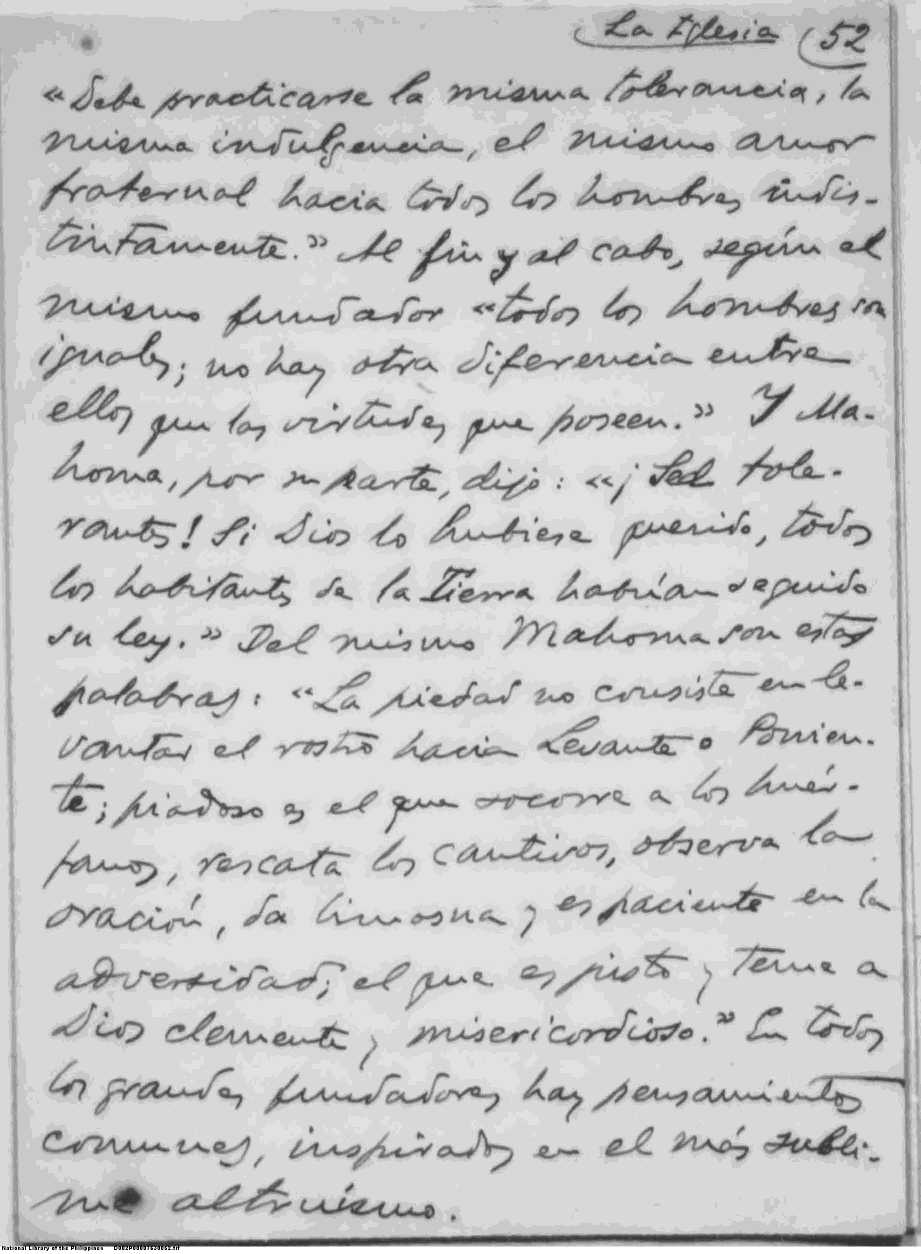 La Iglesia 52
«Debe practicarse la misma tolerancia, la
misma indulgencia, el mismo amor
fraternal hacia todos los hombres indis-
tintamente.» Al fin y al cabo, según el
mismo fundador «todos los hombres son
iguales; no hay otra diferencia entre
ellos que las virtudes que poseen.» Y Ma-
homa, por su parte, dijo: «¡Sed tole-
rantes! Si Dios lo hubiese querido, todos
los habitantes de la Tierra habrían seguido
su ley.» Del mismo Mahoma son estas
palabras: «La piedad no consiste en le-
vantar el rostro hacia Levante o Ponien-
te; piadoso es el que socorre a los huér-
fanos, rescata los cautivos, observa la
oración, da limosna y es paciente en la
adversidad; el que es justo y teme a
Dios clemente y misericordioso.» En todos
los grandes fundadores hay pensamientos
comunes, inspirados en el más subli-
me altruísmo.
National Library of the Philippines